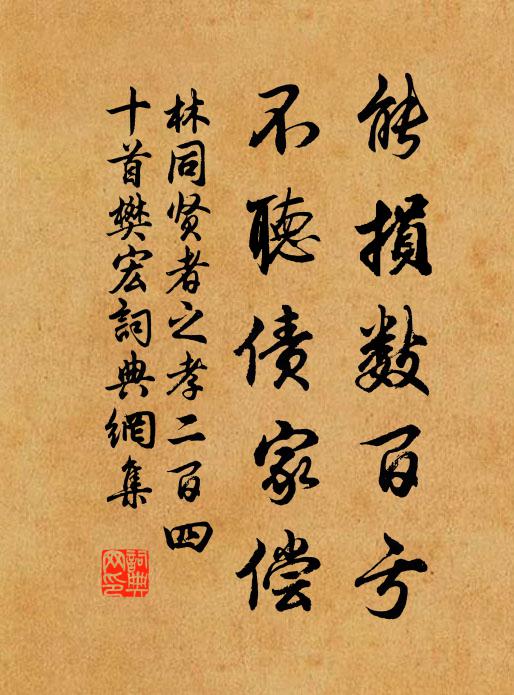 能損数百亏
不聽债家偿
林同贤者之孝二百四
十首樊宏詞典網集
詞典网印